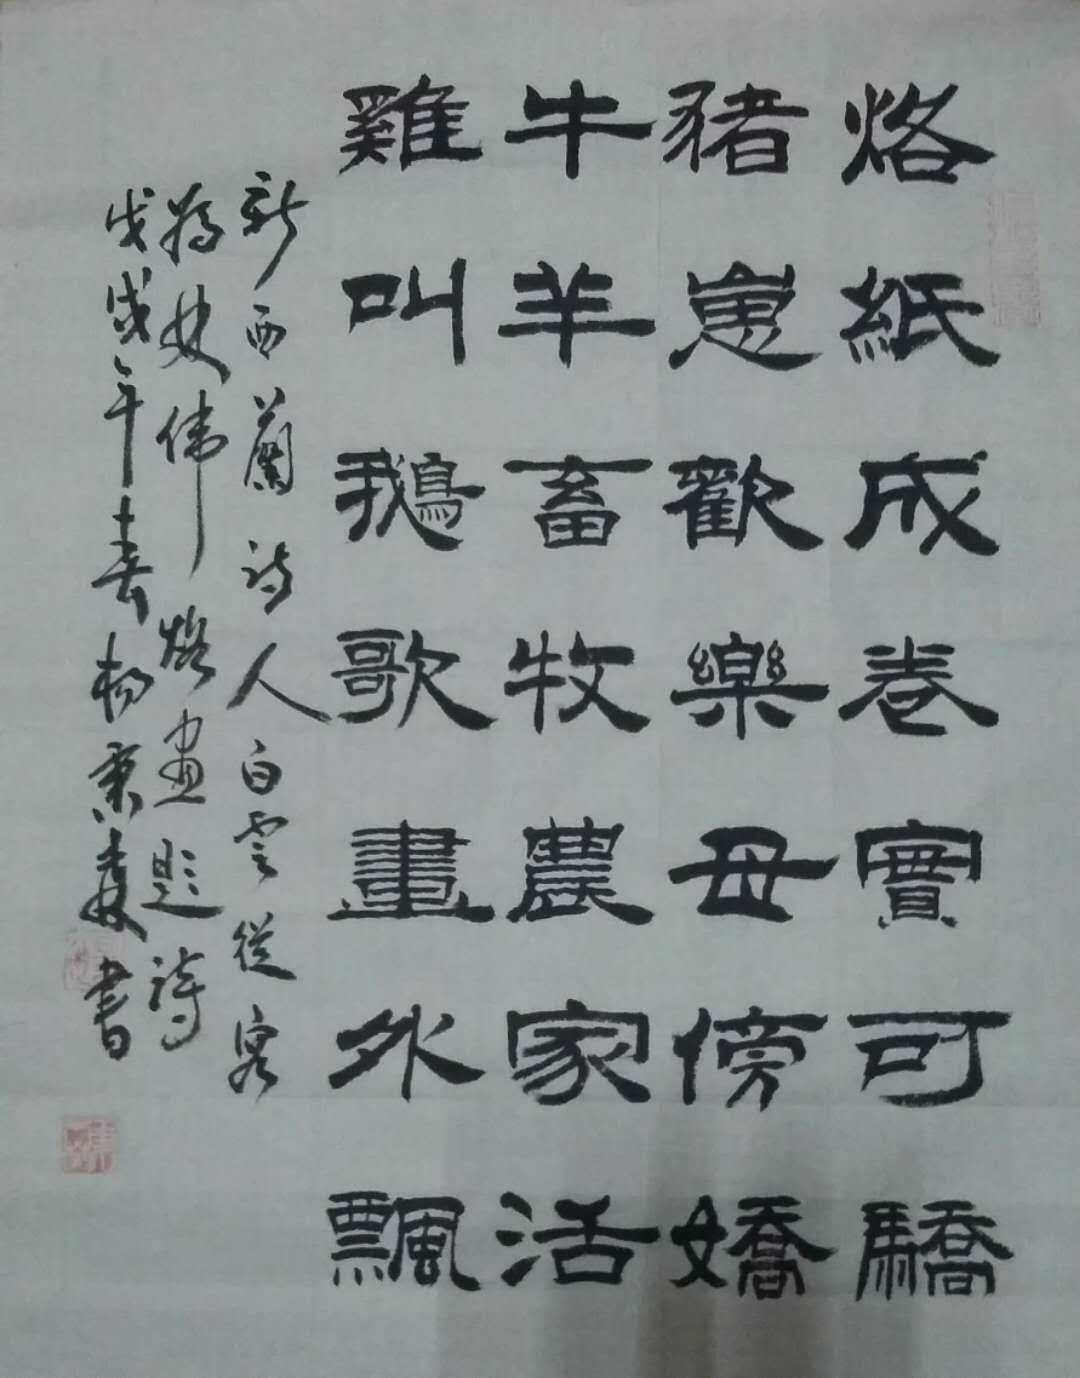 烙紙成卷實可驕
猪崽歡樂母傍嬌
牛羊畜牧農家活
雞叫鵝歌畫外飄
新西蘭詩人白雲從容
為女伟烙画題詩
戊戌年春杨秉 書